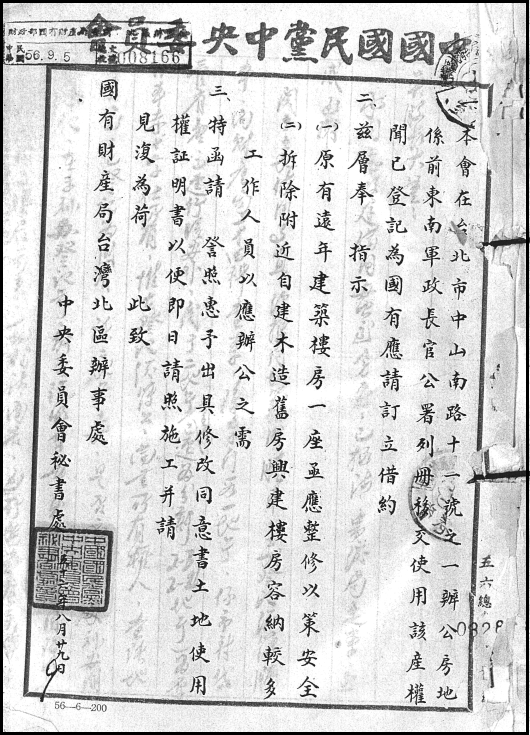 中國國民黨中央委員會
中華民國 56.9.5
008166
本會在台北市中山南路十一號之一辦公房地
係前東南軍政長官公署列冊移交使用該產權
聞已登記為國有應請訂立借約
二、茲層奉 指示
㈠原有遠年建築樓房一座亟應整修以策安全
㈡拆除附近自建木造舊房興建樓房容納較多
工作人員以應辦公之需
三、特函請 詧照惠予出具修改同意書土地使用
權証明書以便即日請照施工并請
見復為荷 此致
國有財產局台灣北區辦事處
中央委員會秘書處 年八月廿九日
五六總
0828
56—6—200